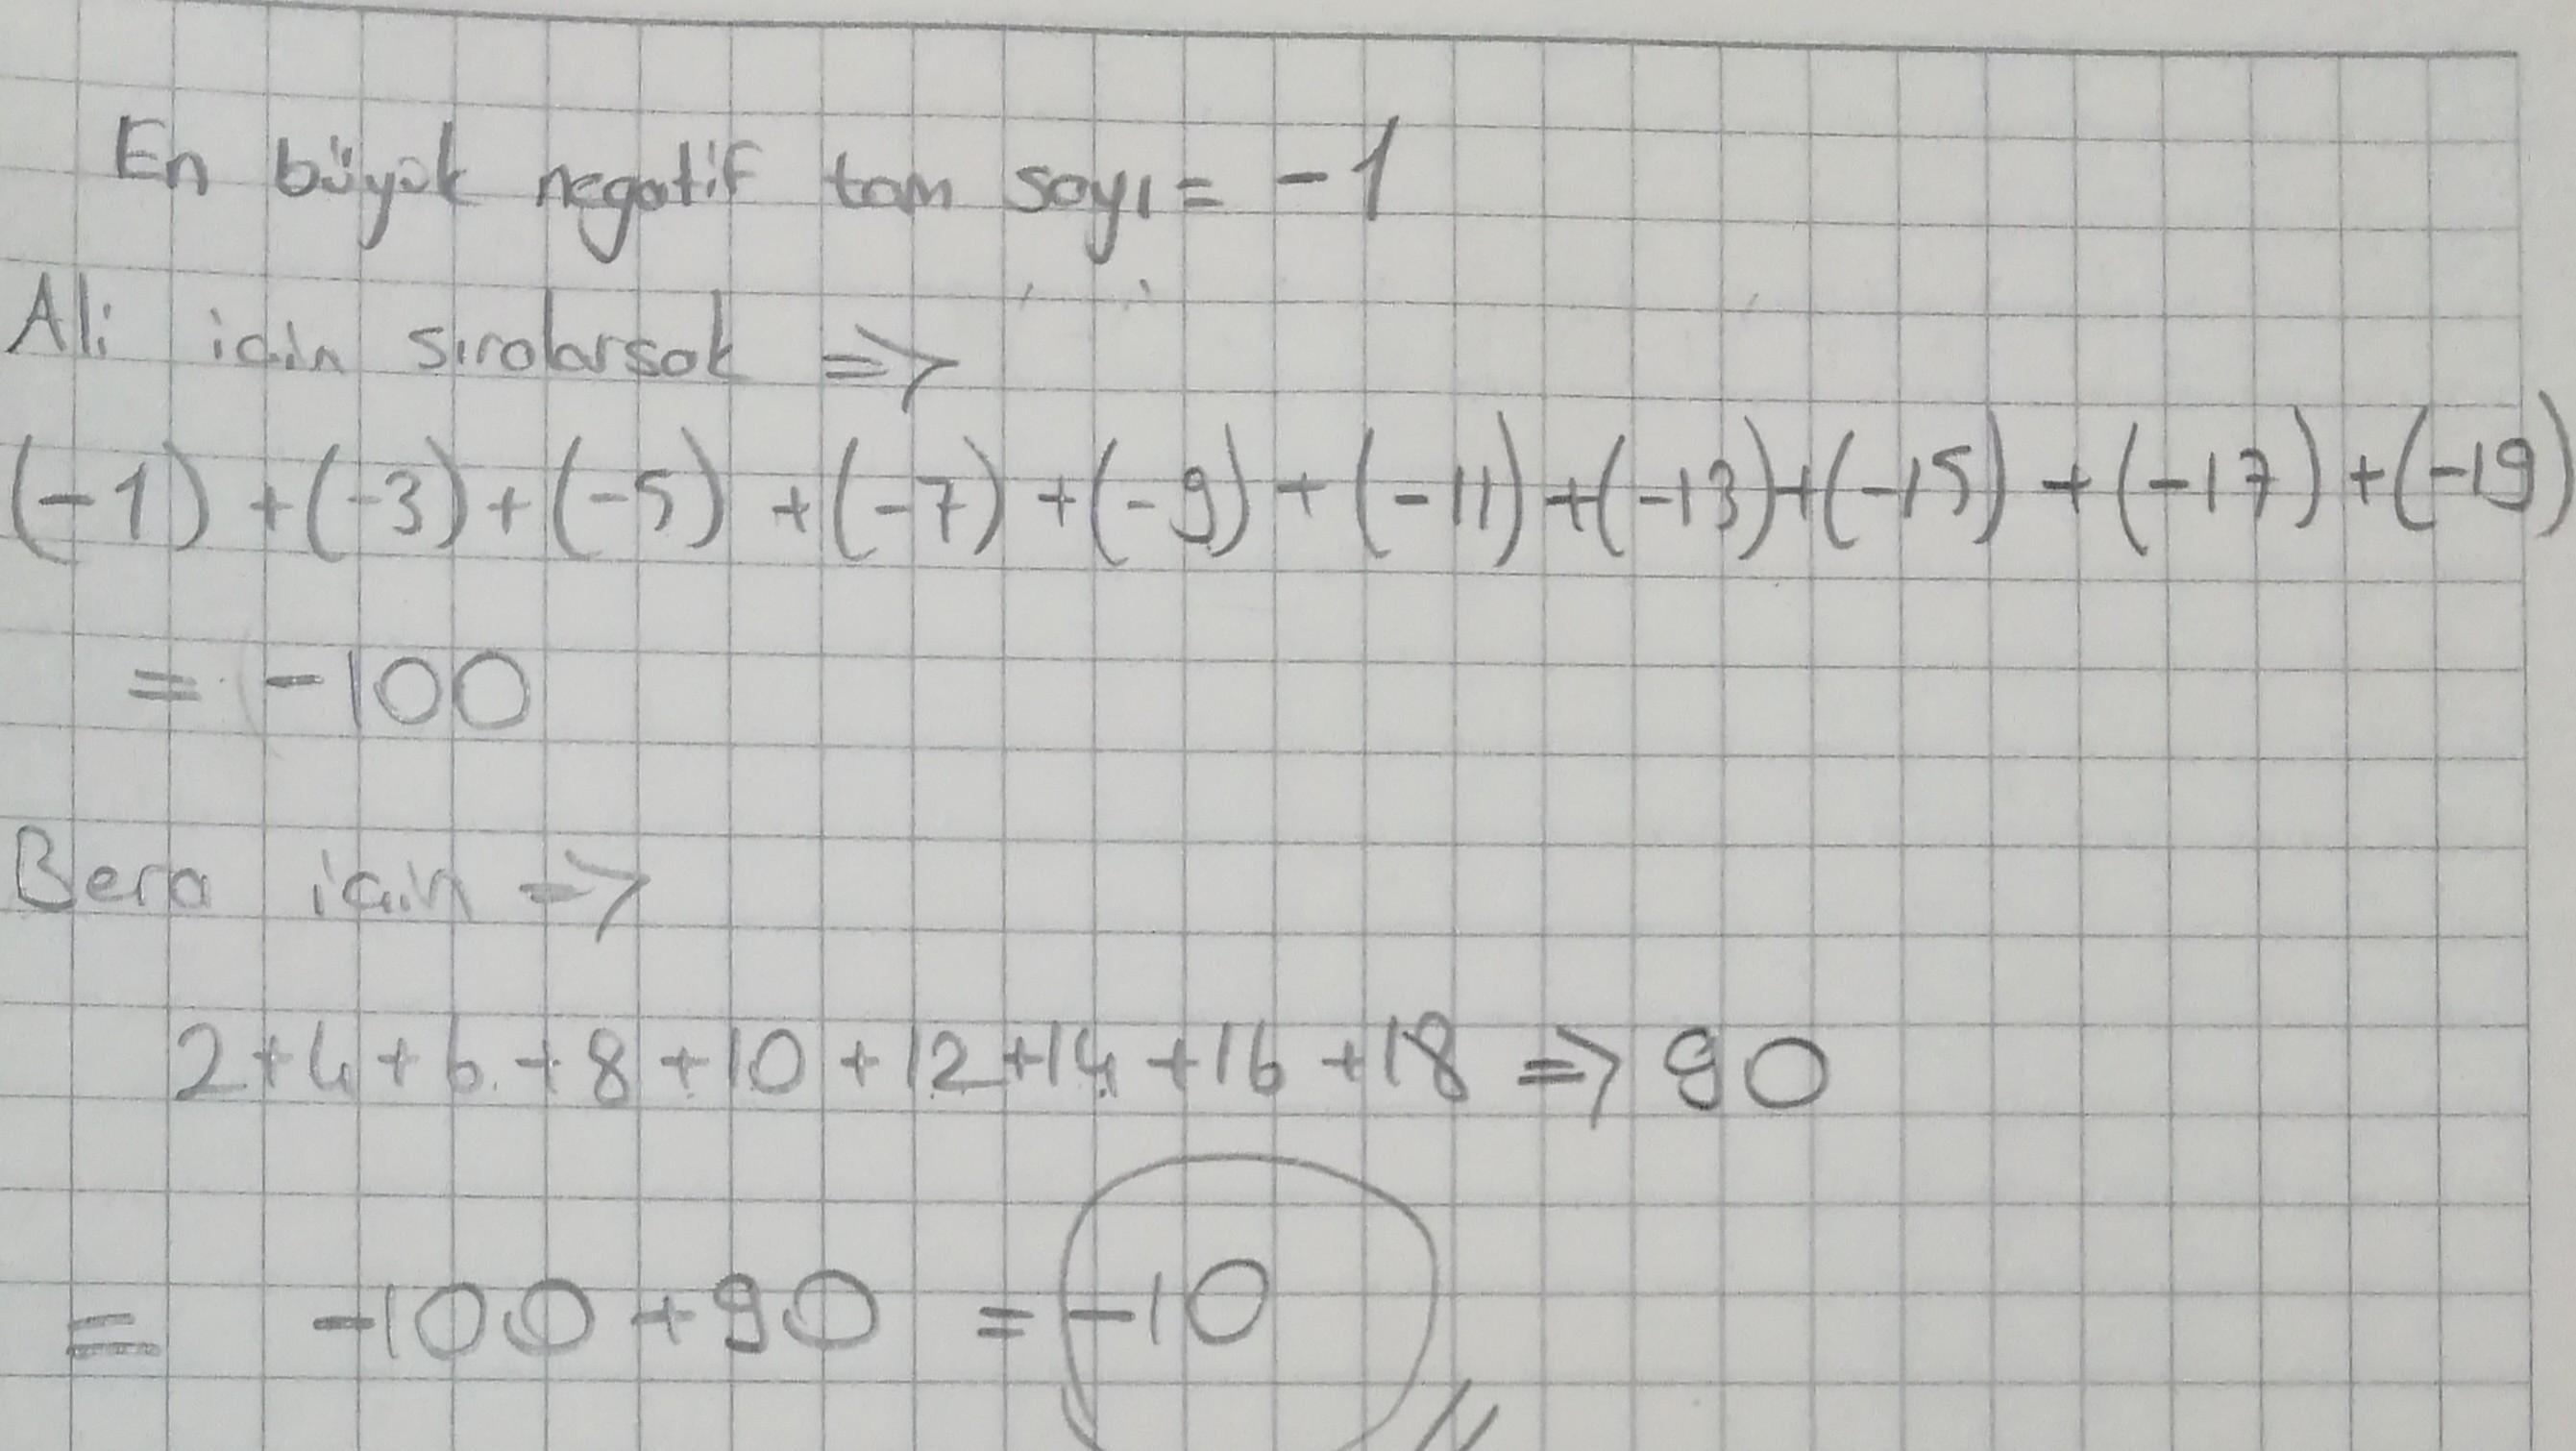 En büyük negatif tam sayı = -1
Ali için sıralarsak =>
(-1) + (-3) + (-5) + (-7) + (-9) + (-11) + (-13) + (-15) + (-17) + (-19)
= -100
Bera için =>
2 + 4 + 6 + 8 + 10 + 12 + 14 + 16 + 18 => 90
= -100 + 90 = -10